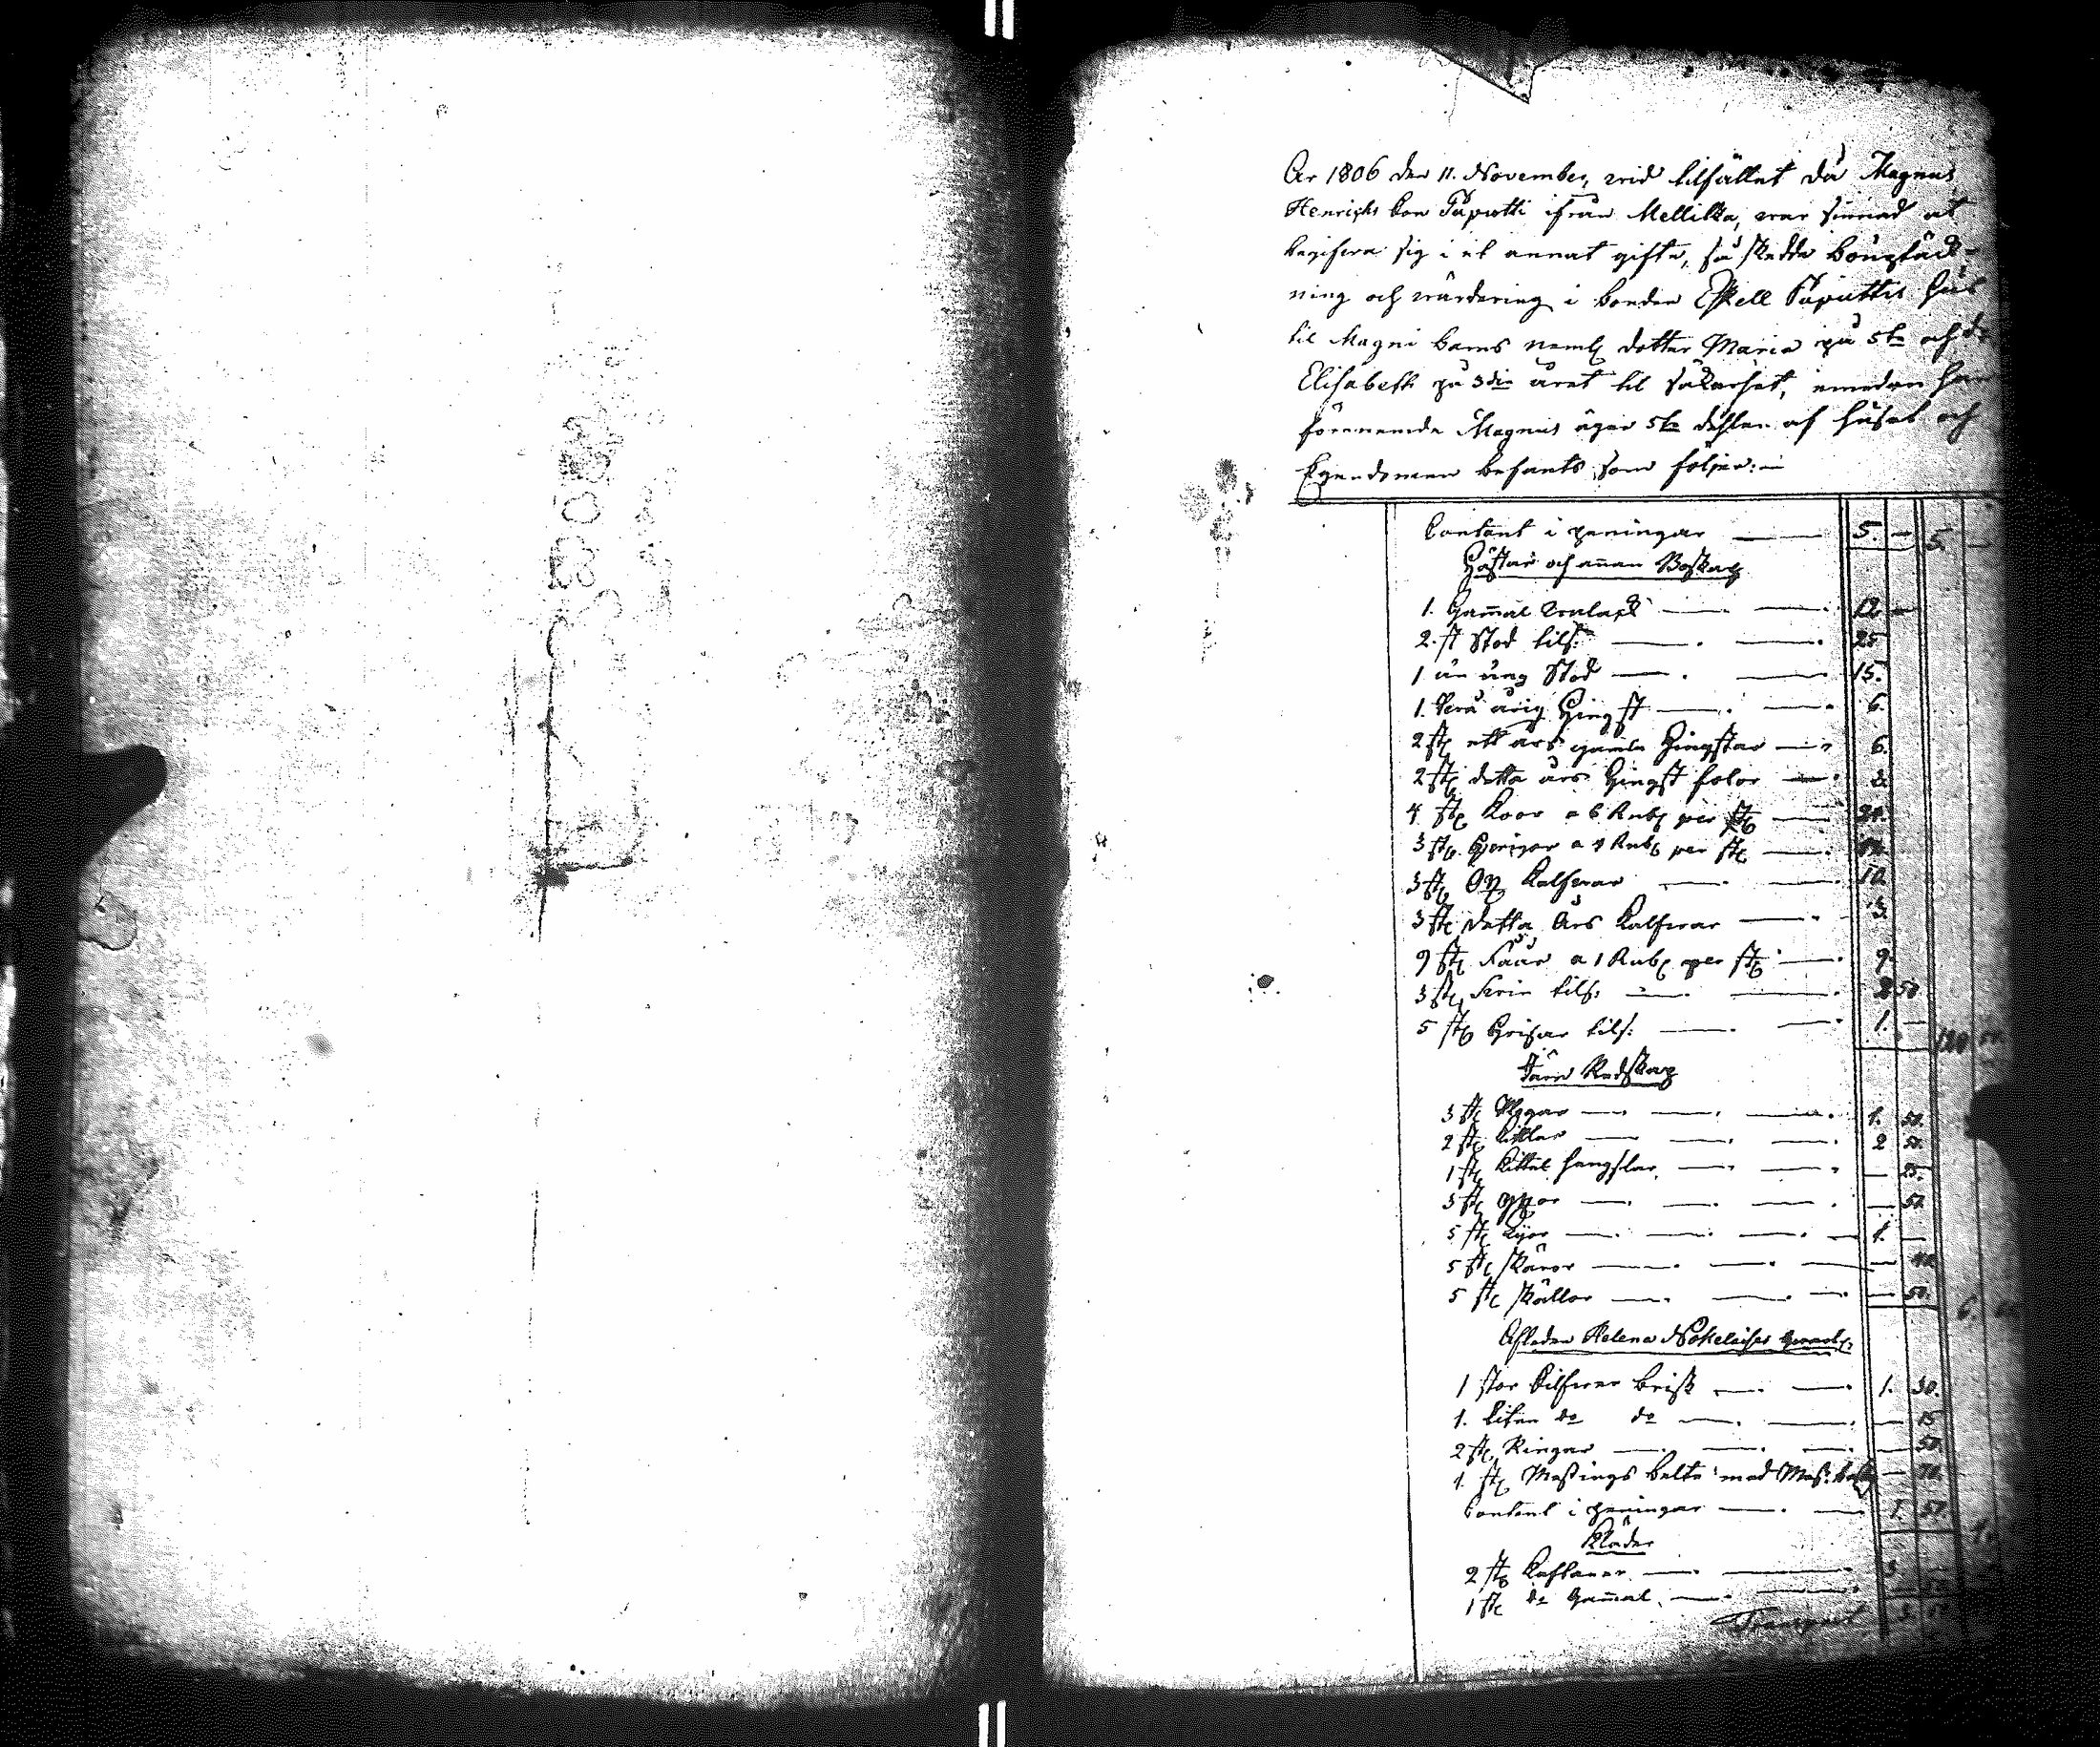 År 1806 den 11. November, wid tilfället då Magnus
Henrichs Son Täputti ifrån Mellilla, war sinnad at
begifwa sig i et annat gifte, så skedde boupteck-
ning och wärdering i bonden Eskell Täputtis hus
til Magni barns neml dotter Maria på 5te och do
Elisabeth på 3die året til säkerhet, emedan han
förrenemde Magnus äger 5te dehlen af huset och
Egendomen befants som följer:
Contant i peningar 5. — 5. —
Hästar och annan Boskap
1. Gammal walack 12. —
2. st Stod tils: 25
1 un ung Stod 15.
1. twå årig Hingst 6.
2 stc ett års gamla Hingstar 6.
2 stc detta års Hingst folor 2.
4 stc Koor a 6 Rub per stc 24.
3 stc Qwigor a 4 Rub per stc 12.
3 stc Ox Kalfwar 10
3 stc detta Års Kalfwar 3.
9 stc Fåår a 1 Rub per stc 9.
3 stc Swin tils: 2 50
5 stc Grisar tils: 1. —
Järn Redskap
3 stc 1. 50.
2 stc Kittlar 2 50.
1 stc Kittel hangslar — 25.
3 stc yxor — 50.
5 stc Lijor 1. —
5 stc skäror — 40
5 stc skällor — 50.
Afledne Helena
1 stor silfwer brisk 1. 30.
1. liten do do — 15
2 stc Ringar — 50.
1. stc Messings belte med — 70.
Contant i peningar 1. 50.
Kläder
2 stc Kaftaner 3
1 stc do Gammal
Transport